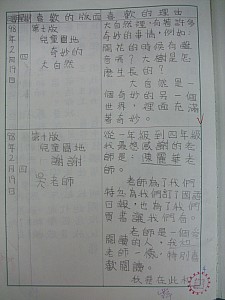 喜歡的版面
喜歡的理由
98年2月17日
第十版
兒童園地
奇妙的
大自然
大自然裡，有著許多
奇妙的事情，例如：
開花的時候有
香嗎？大樹是怎
麼生長的？
大自然是一
個奇妙的另一個
世界，裡面充滿
著奇妙。
98年2月19日
第十版
兒童園地
謝謝
吳老師
從一年級到四年級
我最感謝的老
師是：陳麗華老
師。
老師為了我們
特地為我們訂了國語
日報，也為了我們
賣書讓我們看。
老師是一個喜歡
閱讀的人，我和
老師一樣，特別喜
歡閱讀。